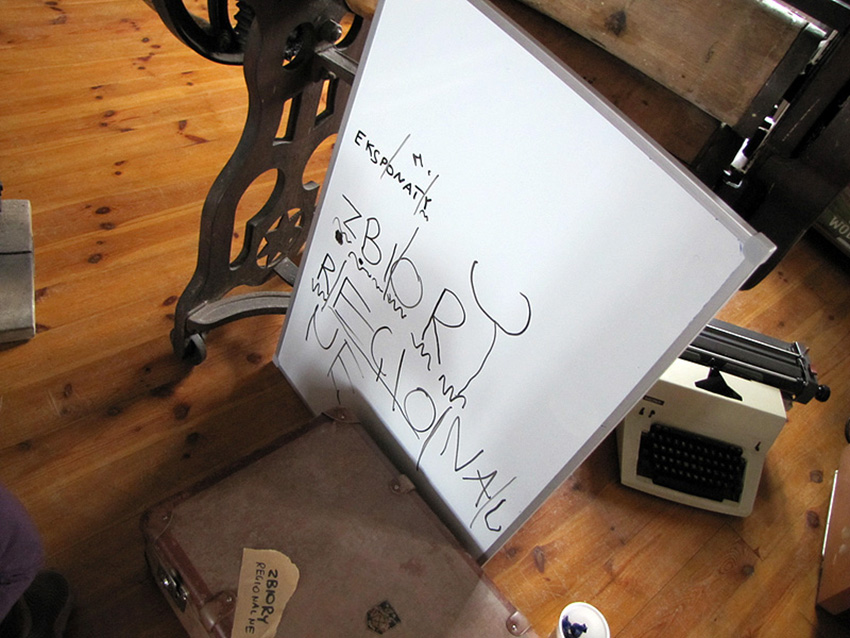 EKSPONATY
ZBIORY
REGIONAL
NE
ZBIORY
REGIONALNE